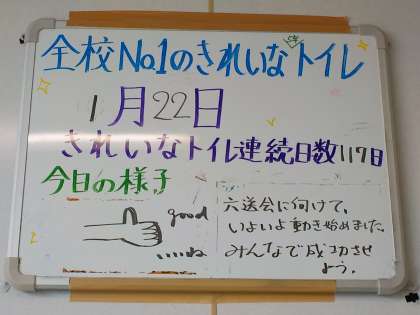 全校No.1のきれいなトイレ
1月22日
きれいなトイレ連続日数117日
今日の様子
good
…ね
六送会に向けて、
いよいよ動き始めました。
みんなで成功させ
よう。